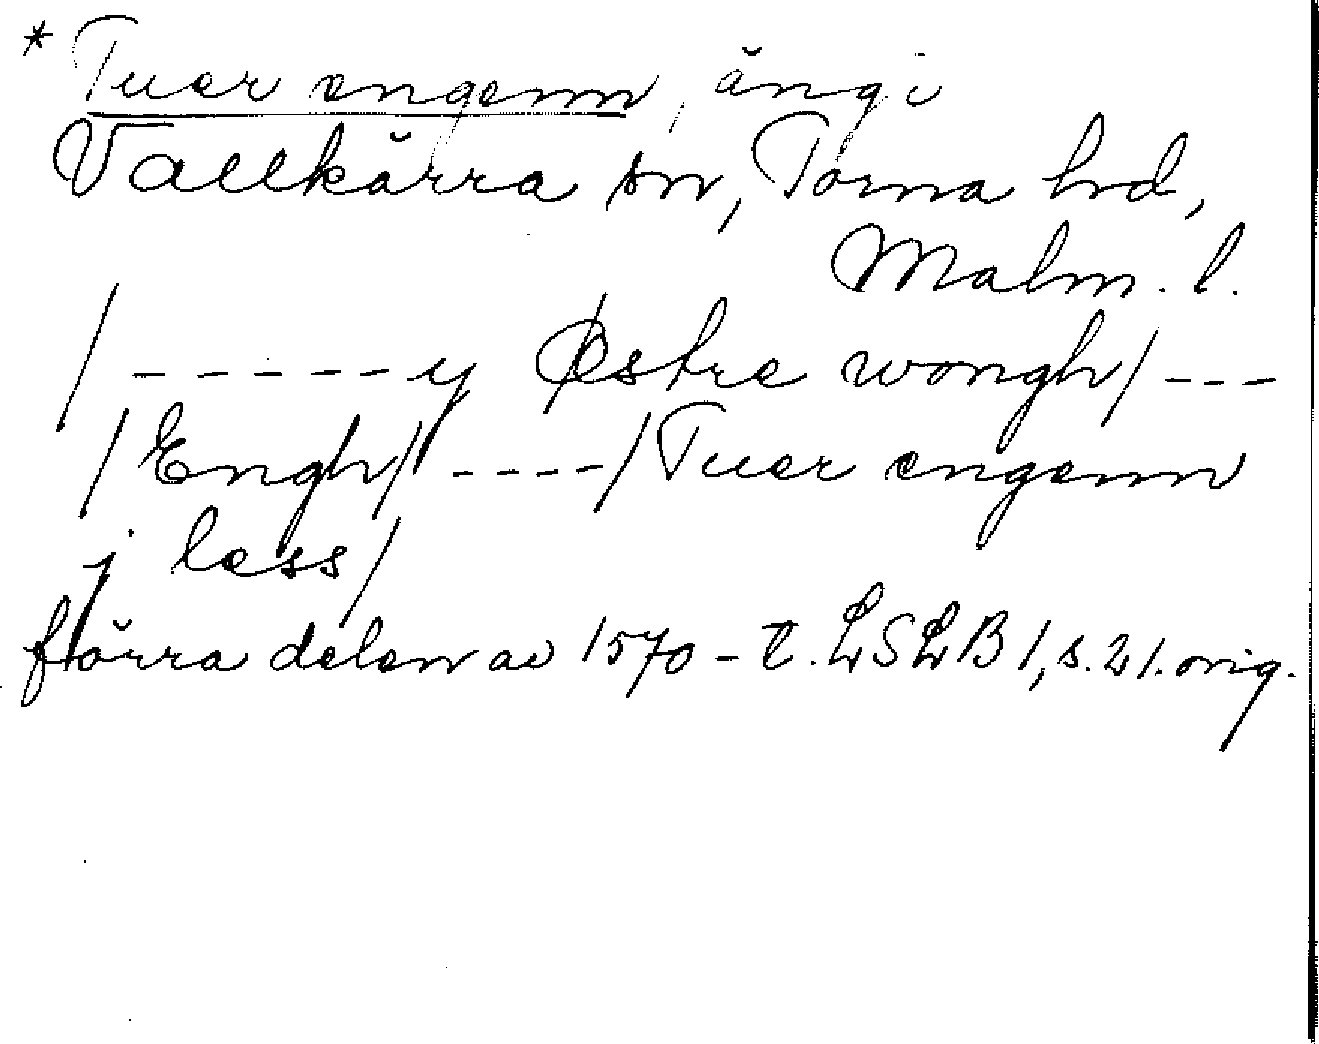 * Tuer engenn, äng i
Vallkärra sn, Torna hd,
Malm. l.
/ ----- y Østre wongh / ---
/ Engh / ---- / Tuer engenn
j less /
förra delen av 1570-t. LSLB 1, s. 21. orig.